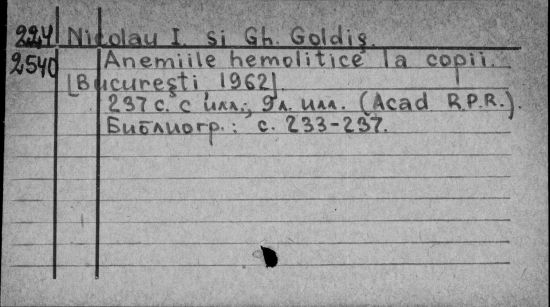 224 Nicolau I. si Gh. Goldiş.
2540 Anemiile hemolitice la copii.
[Bucureşti, 1962].
237 с. с илл.; 9 л. илл. (Acad R.P.R.).
Библиогр.: с. 233-237.